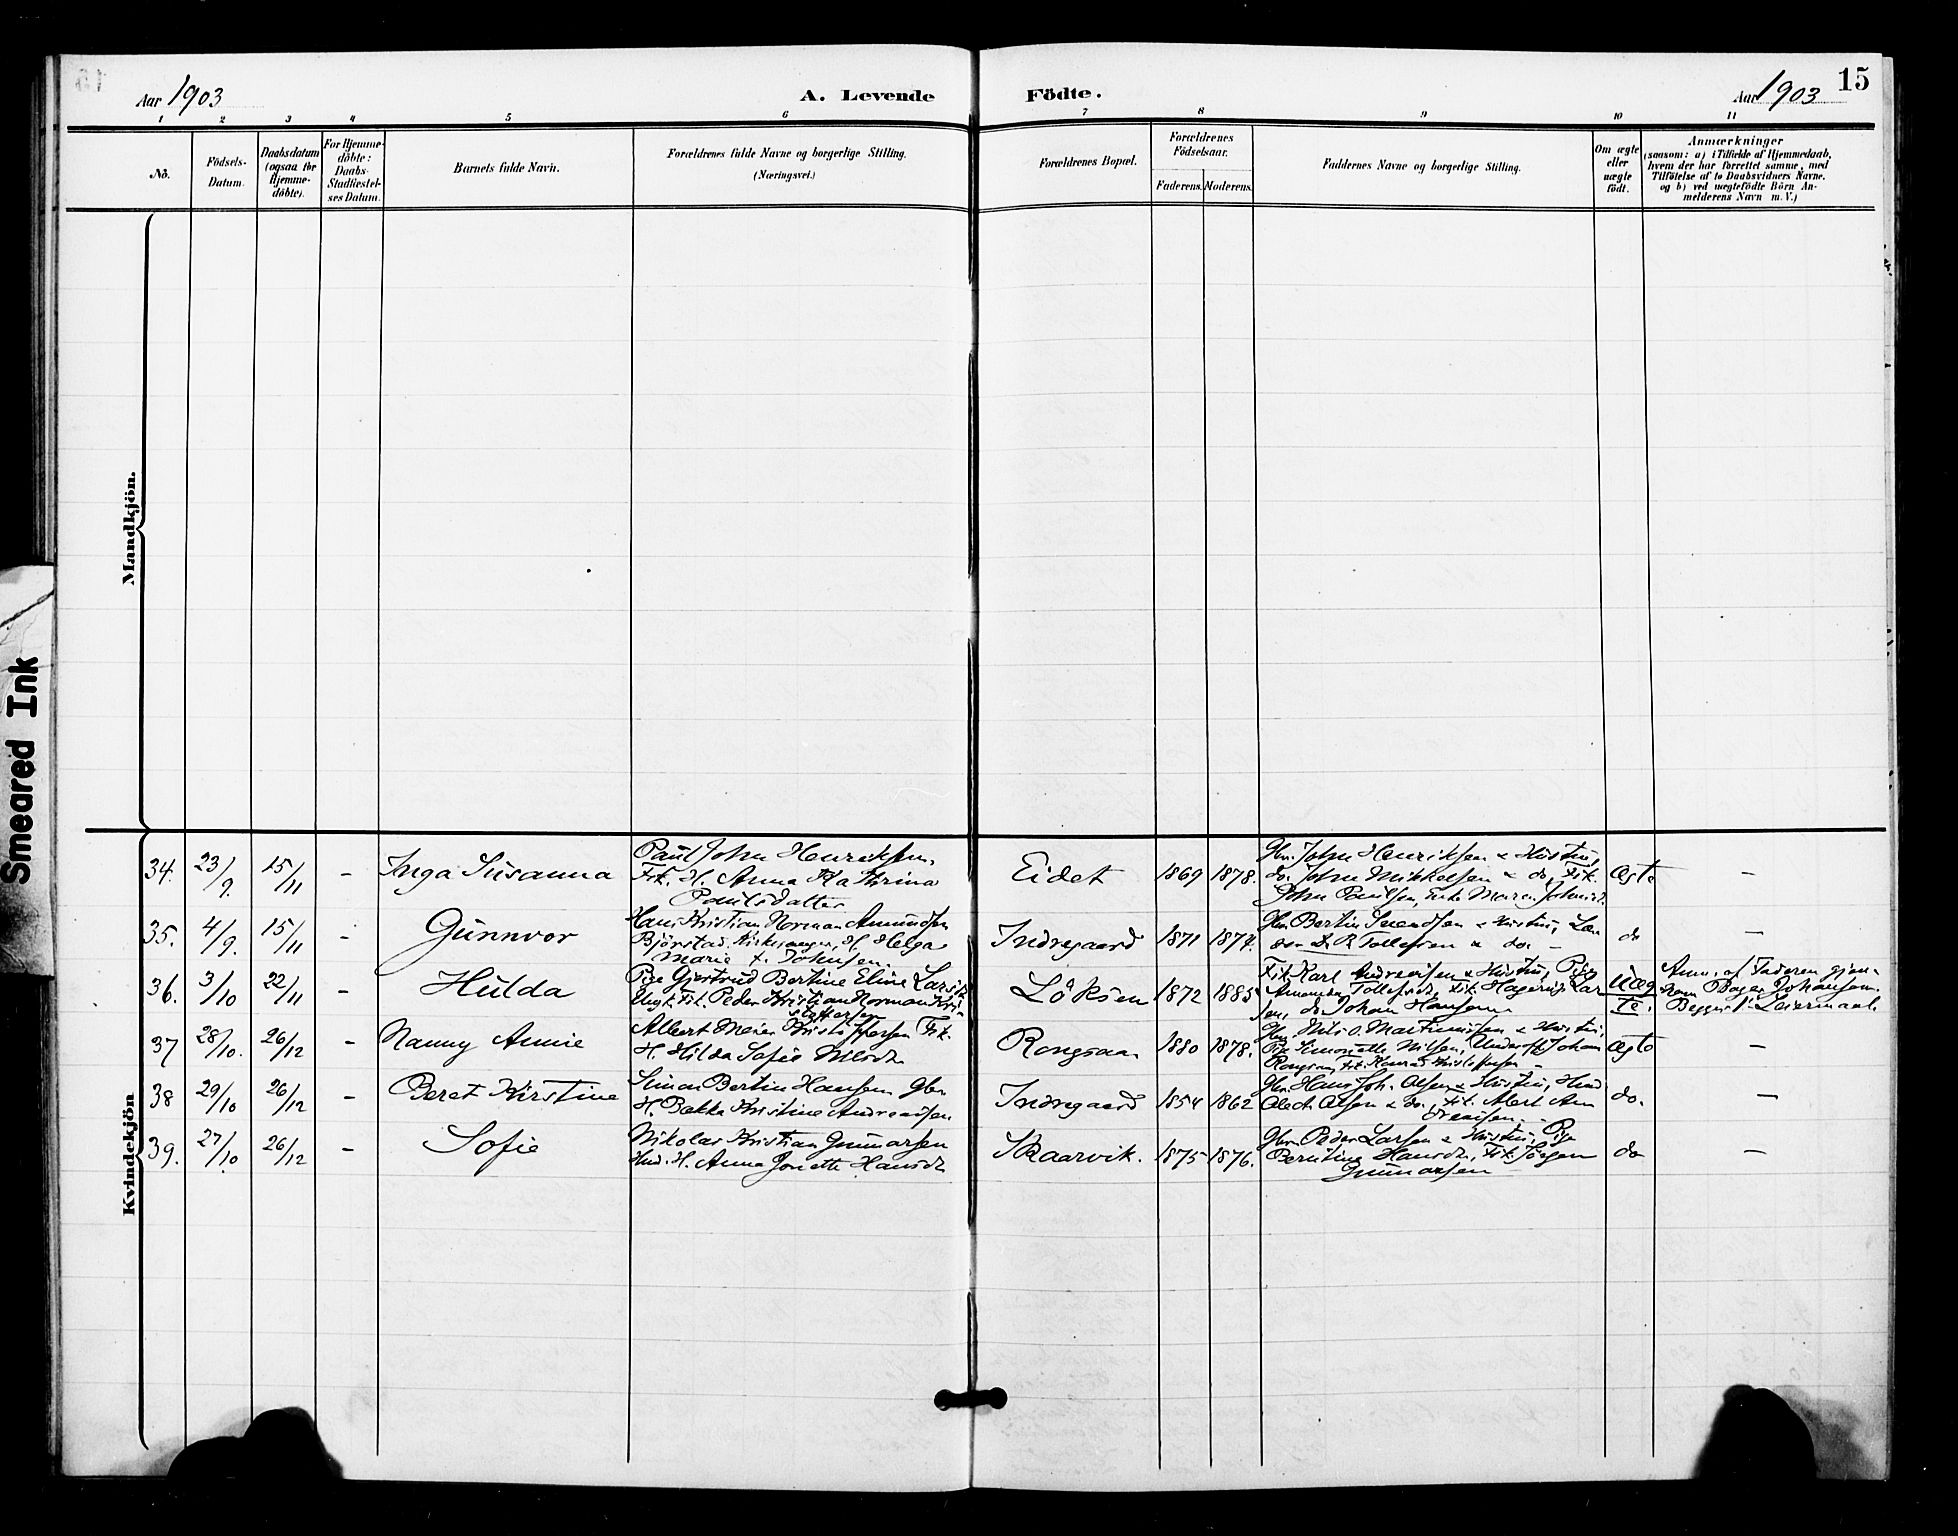 15
Aar 1903
A. Levende Födte.
Aar 1903
1 2 3 4 5 6 7 8 9 10 11
No.
Födsels-
Datum.
Daabsdatum
(ogsaa for
Hjemme-
döbte).
For Hjemme-
döbte:
Daabs-
Stadfæstel-
ses Datum.
Barnets fulde Navn.
Forældrenes fulde Navne og borgerlige Stilling.
(Næringsvei.)
Forældrenes Bopæl.
Forældrenes
Födselsaar.
Faderens. Moderens.
Faddernes Navne og borgerlige Stilling.
Om ægte
eller
uægte
födt.
Anmærkninger
(saasom: a) i Tilfælde af Hjemmedaab,
hvem der har forrettet samme, med
Tilföielse af to Daabsvidners Navne.
og b) ved uægtefödte Börn An-
melderens Navn m. V.)
Mandkjön.
Kvindekjön
34. 23/9. 15/11 - Inga Susanna
Paul John Henriksen,
Fik. H. Anna Kathrina
Paulsdatter
Eidet 1869 1878.
Gbr. John Henriksen & Hustru,
do. John Mikkelsen & do, Fik.
John Paulsen, Enke Maren Johnsd.
Ægte -
35. 4/9. 15/11 - Gunnvor
Hans Kristian Norman Amundsen
Björstad, Kirkesanger, H. Helga
Marie f. Johnsen.
Indregaard 1871 1874.
Gbr. Bertin Svendsen & Hustru, Læ
rer D. R. Tollefsen & do. -
do -
36. 3/10 22/11 - Hulda
Pige Gjertrud Bertine Eline Larsd.
Ungk. Fik. Peder Kristian Norman Kri
stoffersen
Löksen 1872 1885
Fik. Karl Andreasen & Hustru, Pige
Tollefsd., Fik. Hagerup Lar
sen, do Johan Hansen
Uæg
te.
Anm. af Faderen gjen-
nem Johansen.
Begges 1. Leiermaal.
37 28/10. 26/12 - Nanny Annie
Albert Meier Kristoffersen Fik.
H. Hilda Sofie Nilsd.
Rongsaa 1880 1878.
Gbr. Nils O. Martinussen & Hustru,
Pige Simonette Nilsen, Underoff. Johan
Fik. Konrad Kristoffersen -
Ægte -
38 29/10 26/12 - Beret Kirstine
Simon Bertin Hansen Gbr
H. Bekka Kristine Andreassen
Indregaard 1854 1862
Gbr. Hans Joh. Olsen & Hustru, Hmd.
Olsen & do., Fik. Albert An
dreassen.
do. -
39. 27/10 26/12 - Sofie
Nikolai Kristian Gunnarsen
Hmd. H. Anna Jonette Hansd.
Skaarvik. 1875 1876.
Gbr. Peder Larsen & Hustru, Pige
Berntine Hansd., Fik. Jörgen
Gunnarsen
do -
Smeared Ink